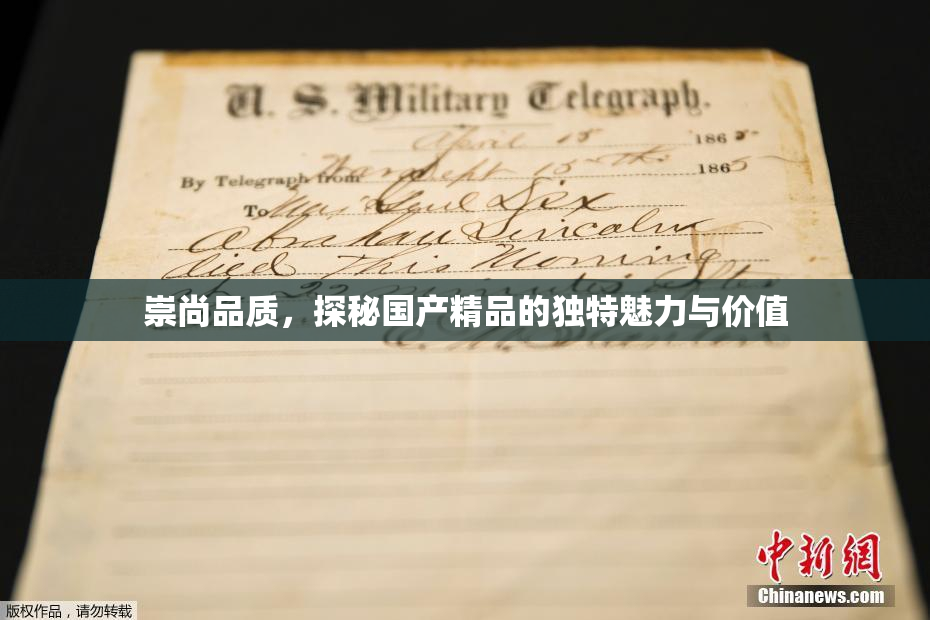 U. S. Military Telegraph.
April 15 1865
By Telegraph from War Dept 15th 1865
To Maj Genl Dix
Abraham Lincoln
died This Morning
at 22 minutes after
崇尚品质，探秘国产精品的独特魅力与价值
E. M. Stanton
中新網
Chinanews.com
版权作品，请勿转载